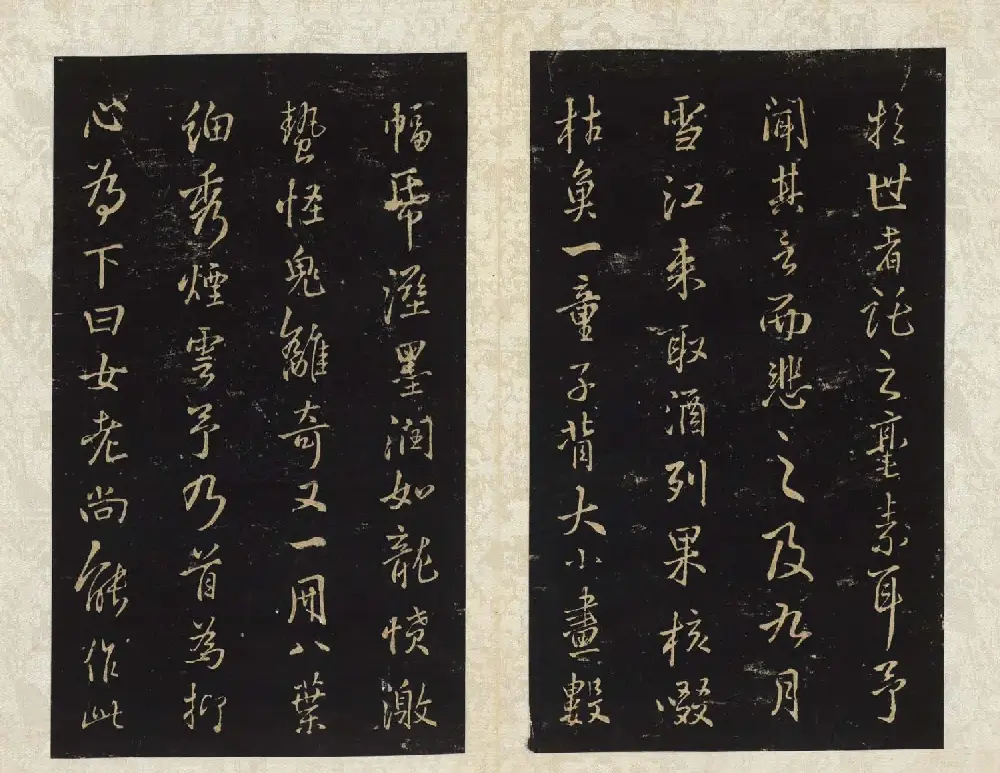 於世者託之毫素耳予
聞其言而悲之及九月
雪江来取酒列果核啜
枯魚一童子背大小畫數
幅帋溼墨潤如龍憤激
蟄怪鬼離奇又一冊八葉
細秀煙雲予乃首為抑
心為下曰女老尚能作此